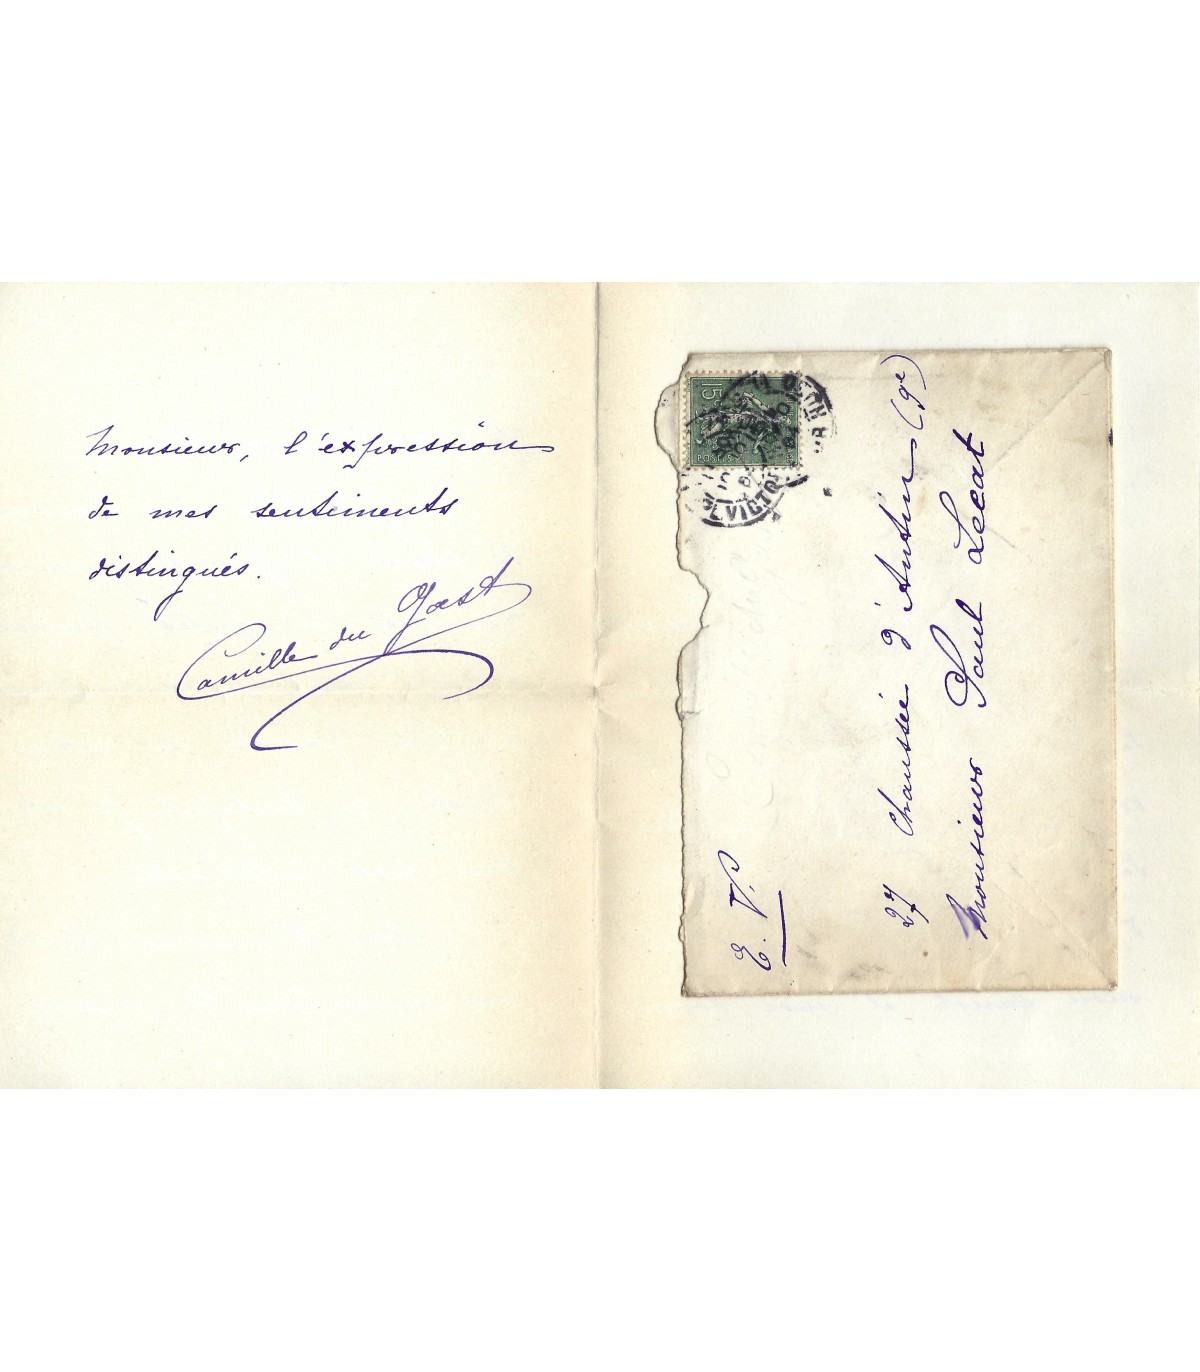 Monsieur, l'expression
de mes sentiments
distingués.
Camille du Gast
E. V.
Monsieur Paul Lecat
27 Chaussée d'Antin (9e)
15c
VICTOR